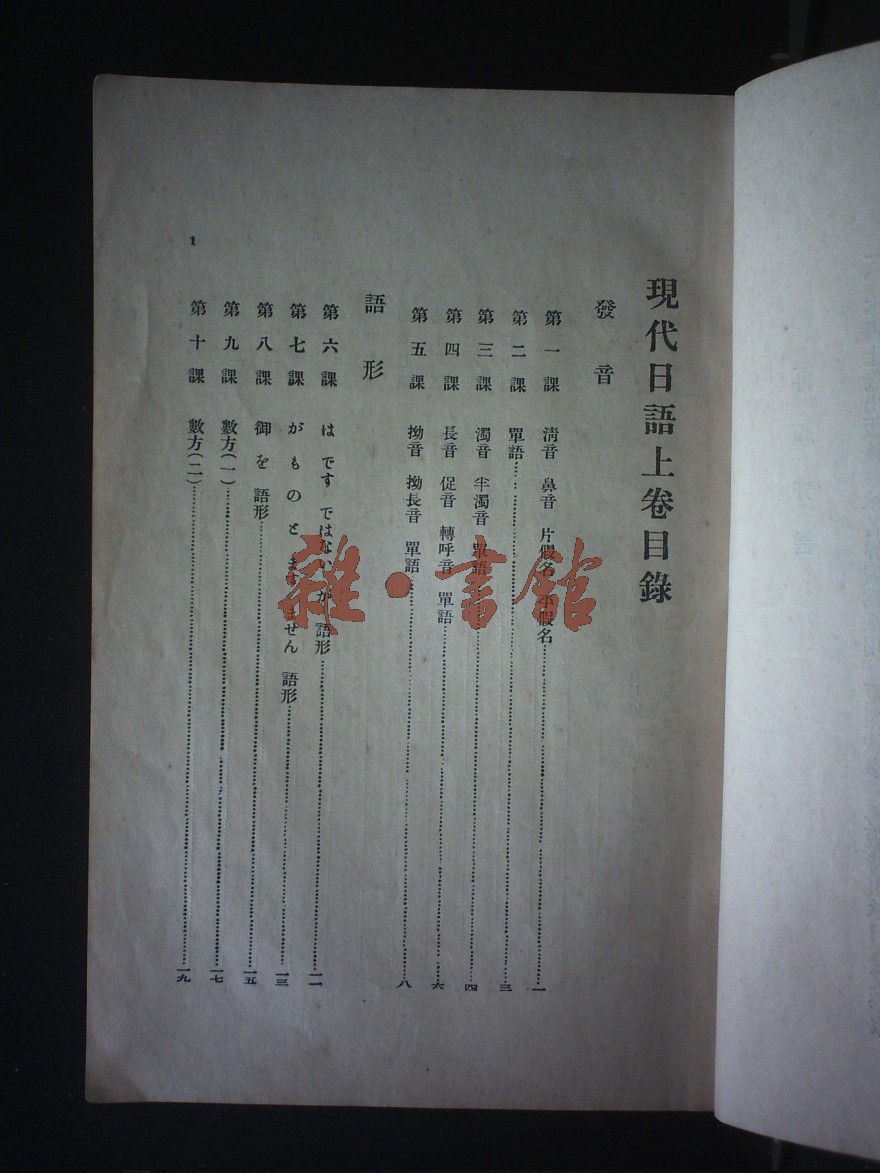 現代日語上卷目錄
發音
第一課 淸音 鼻音 片假名 平假名……一
第二課 單語……三
第三課 濁音 半濁音 單語……四
第四課 長音 促音 轉呼音 單語……六
第五課 拗音 拗長音 單語……八
語形
第六課 は です ではない か 語形……一一
第七課 が も の と ます ません 語形……一三
第八課 御 を 語形……一五
第九課 數方(一)……一七
第十課 數方(二)……一九
1
雜·書館